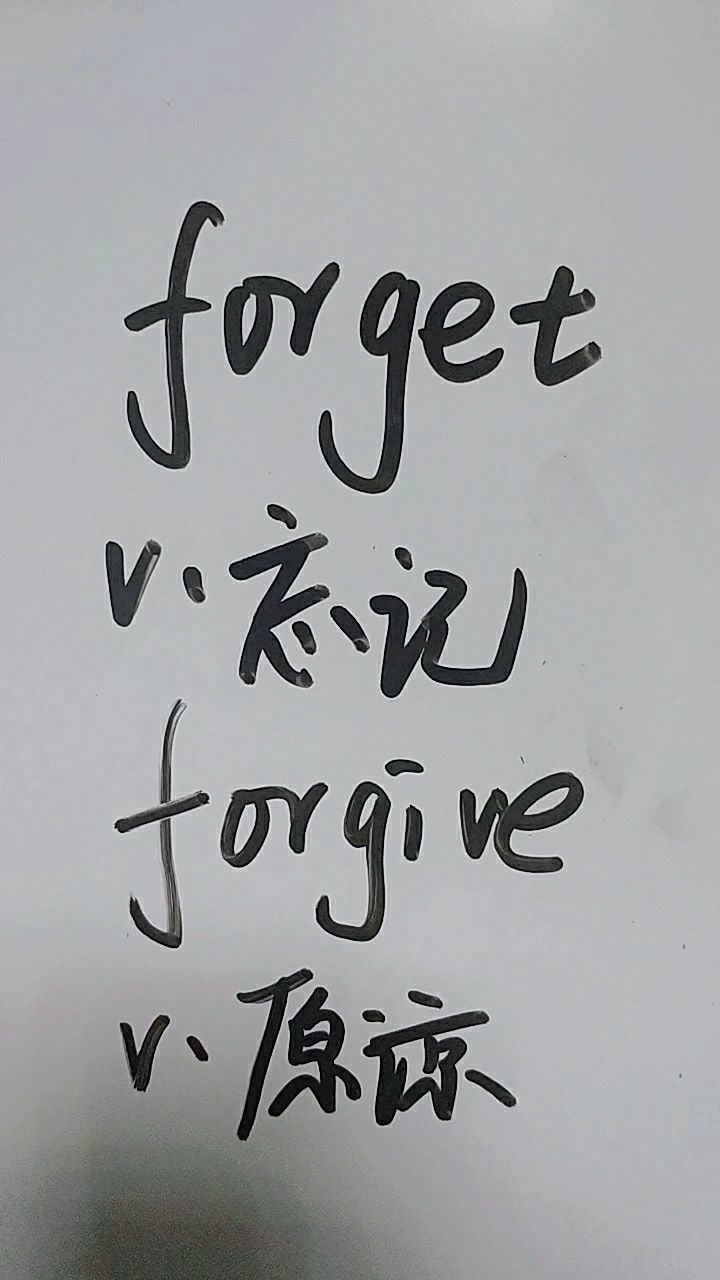 forget
v. 忘记
forgive
v. 原谅